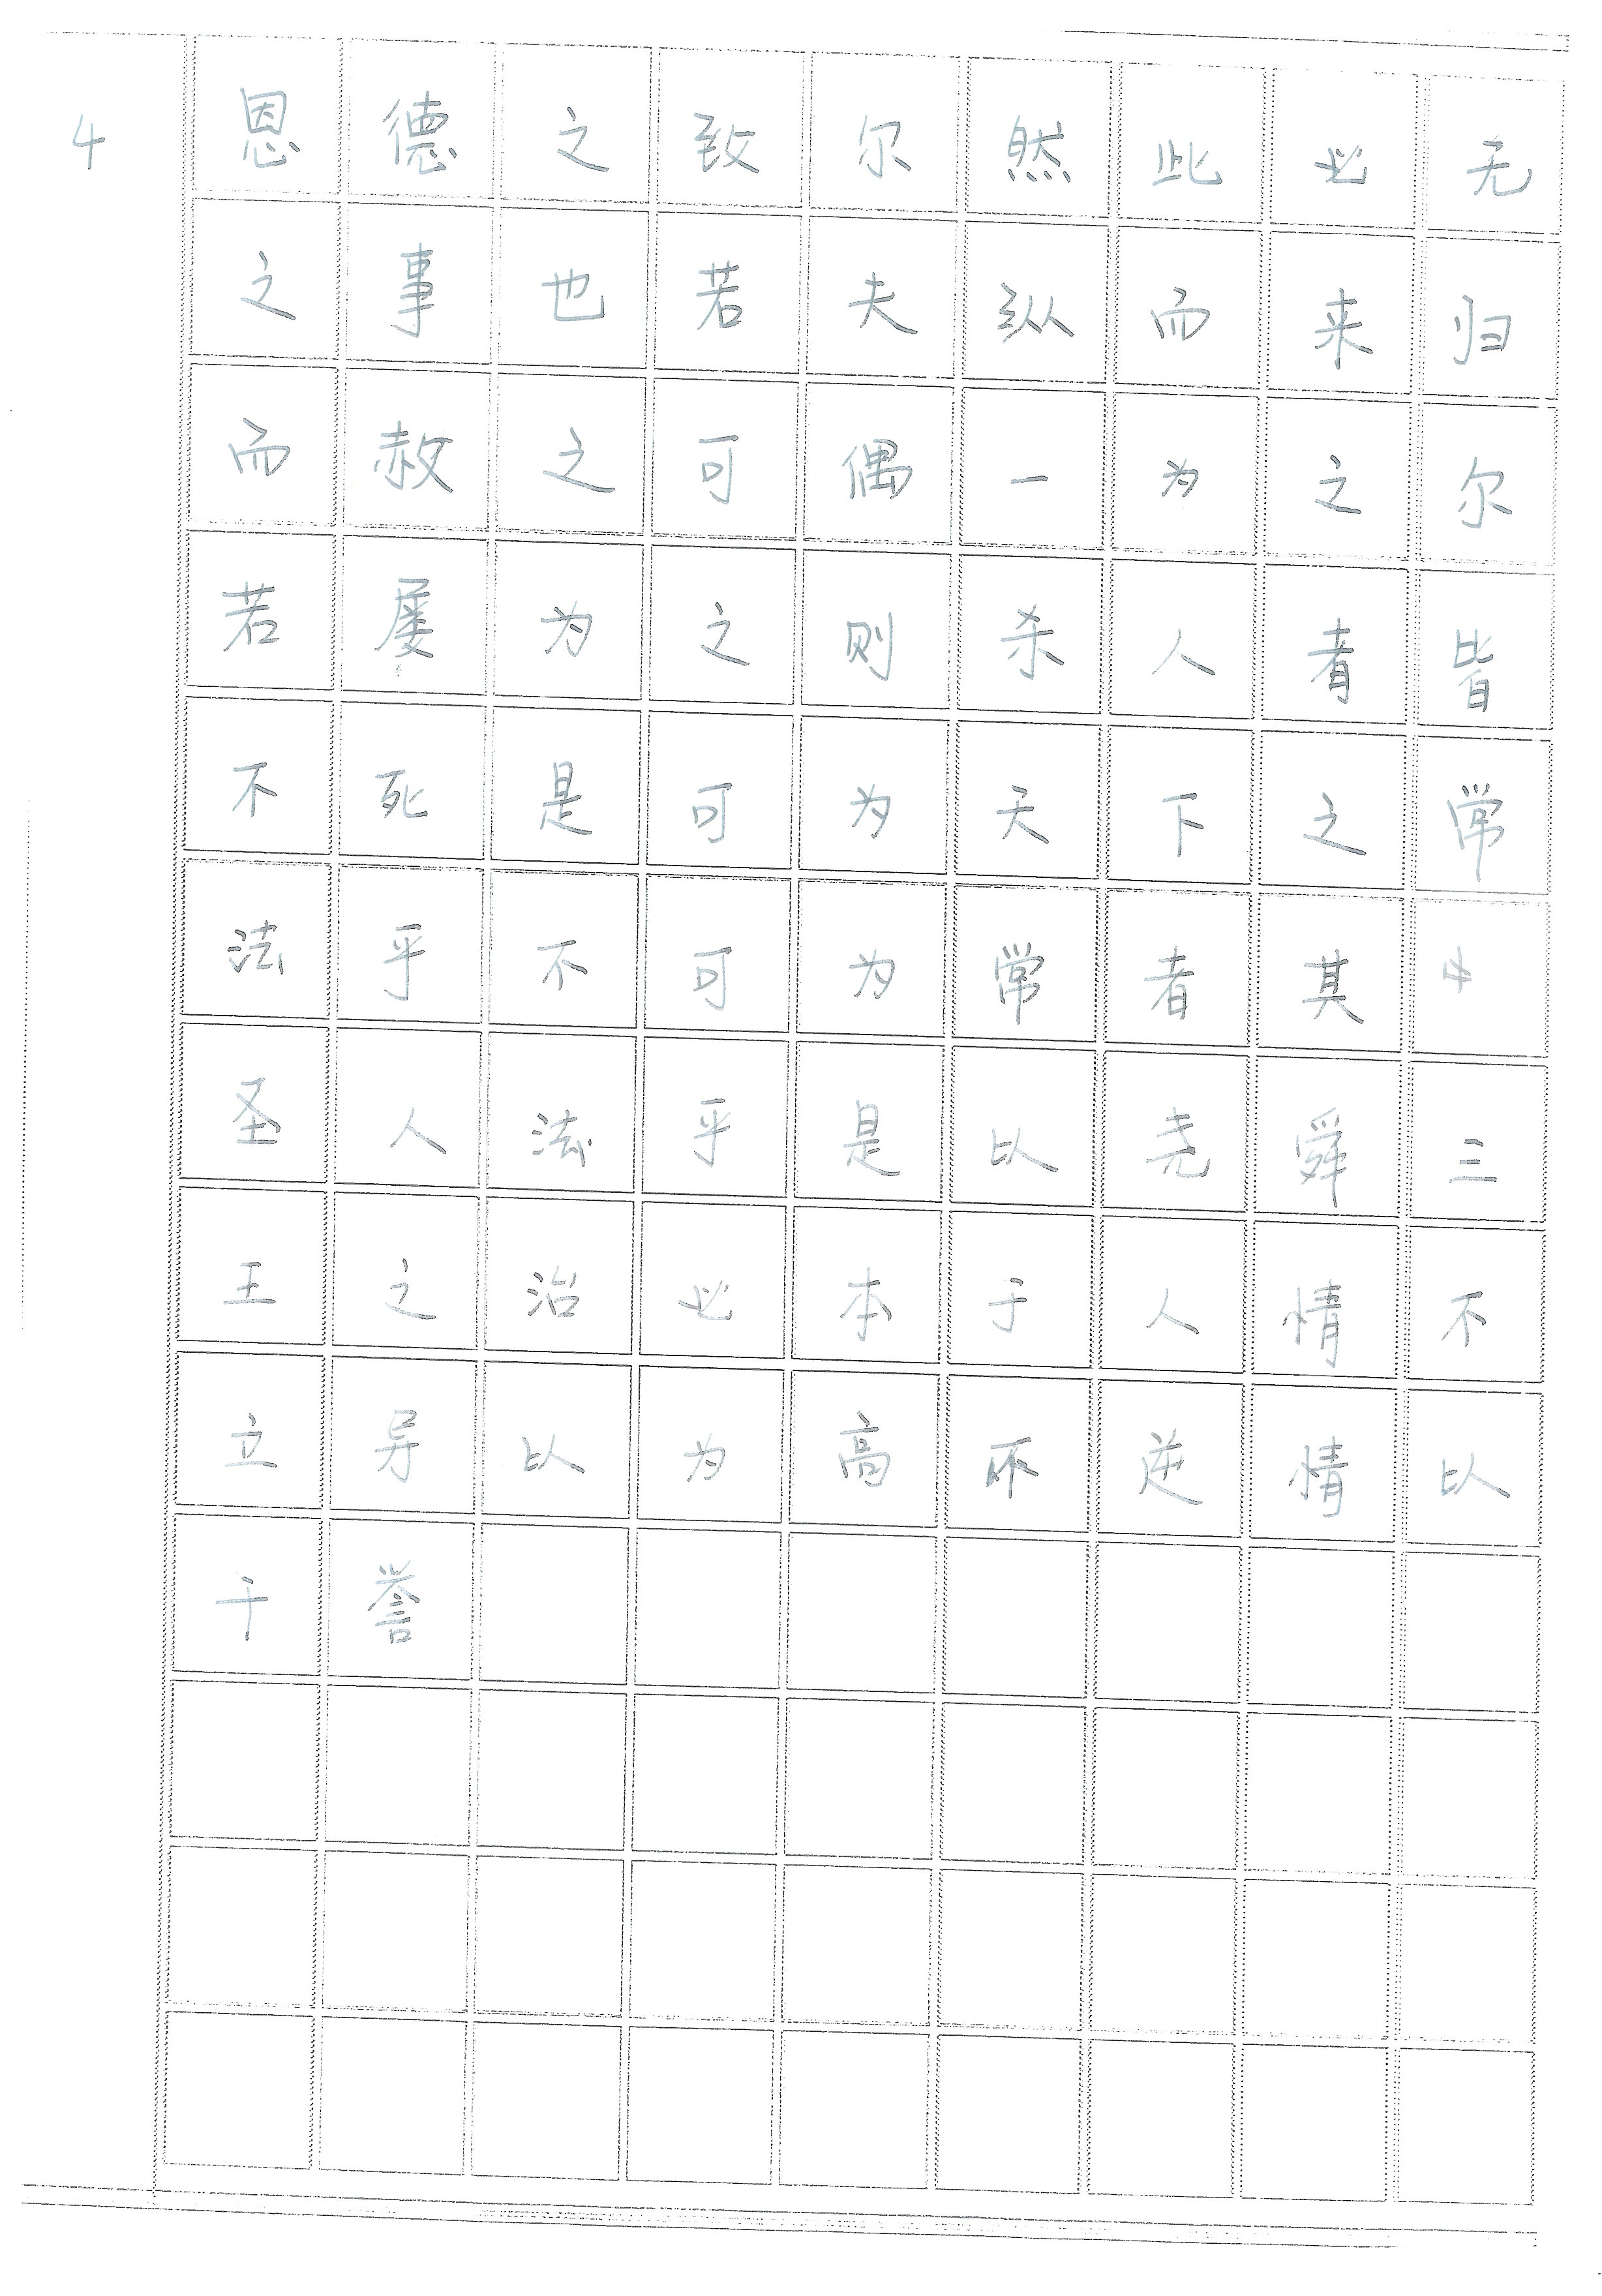 4
恩德之致尔然此必无
之事也若夫纵而来归
而赦之可偶一为之尔
若屡为之则杀人者皆
不死是可为天下之常
法乎不可为常者其
圣人法乎是以尧舜三
王之治必本于人情不
立异以为高不逆情以
干誉